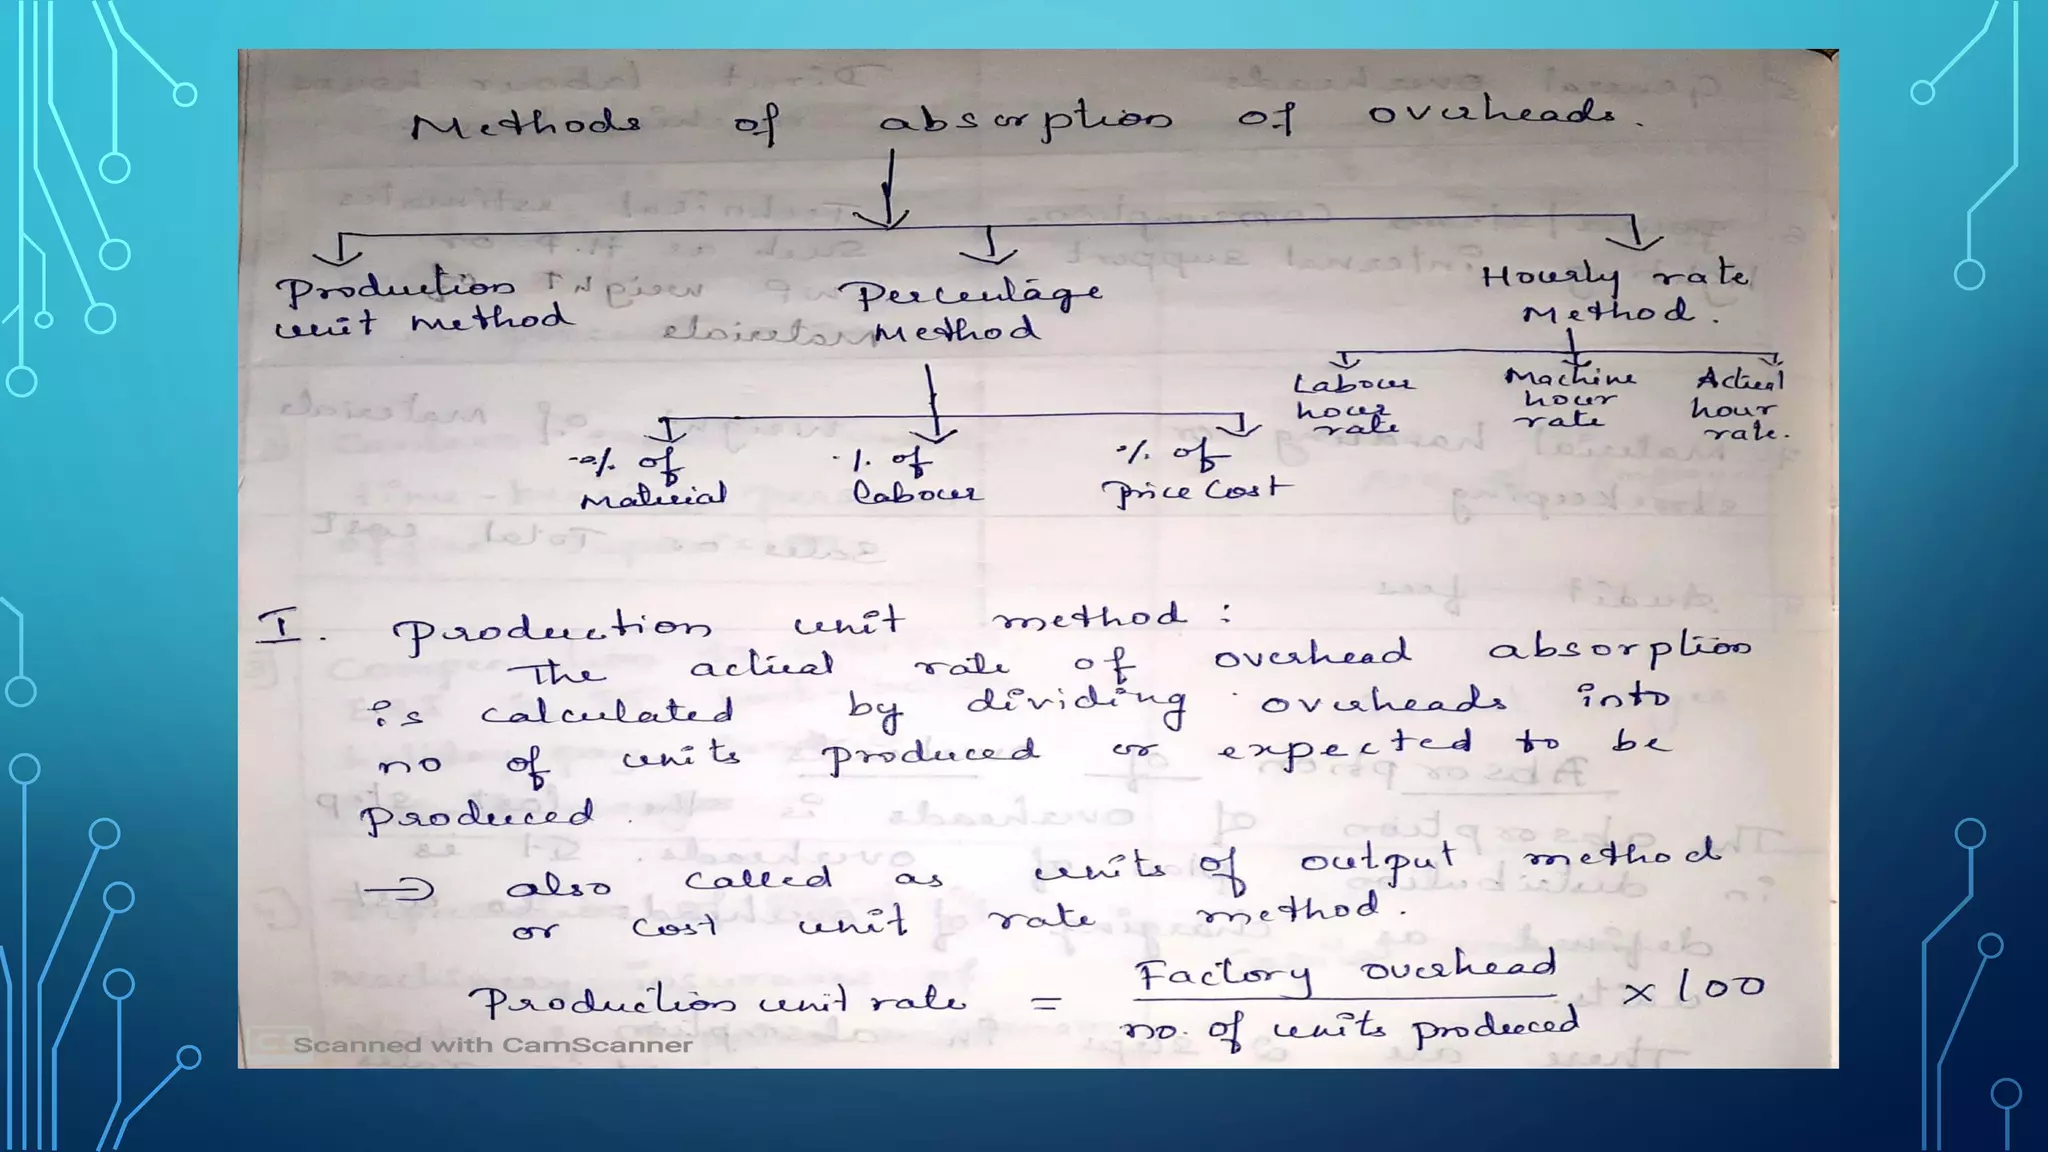 Methods of absorption of overheads.
Production unit method
Percentage Method
Hourly rate Method.
Labour hour rate
Machine hour rate
Actual hour rate.
% of Material
% of labour
% of price Cost
I. Production unit method :
The actual rate of overhead absorption
is calculated by dividing overheads into
no of units produced or expected to be
produced.
⇒ also called as units of output method
or cost unit rate method.
Production unit rate = Factory overhead / no. of units produced × 100
Scanned with CamScanner